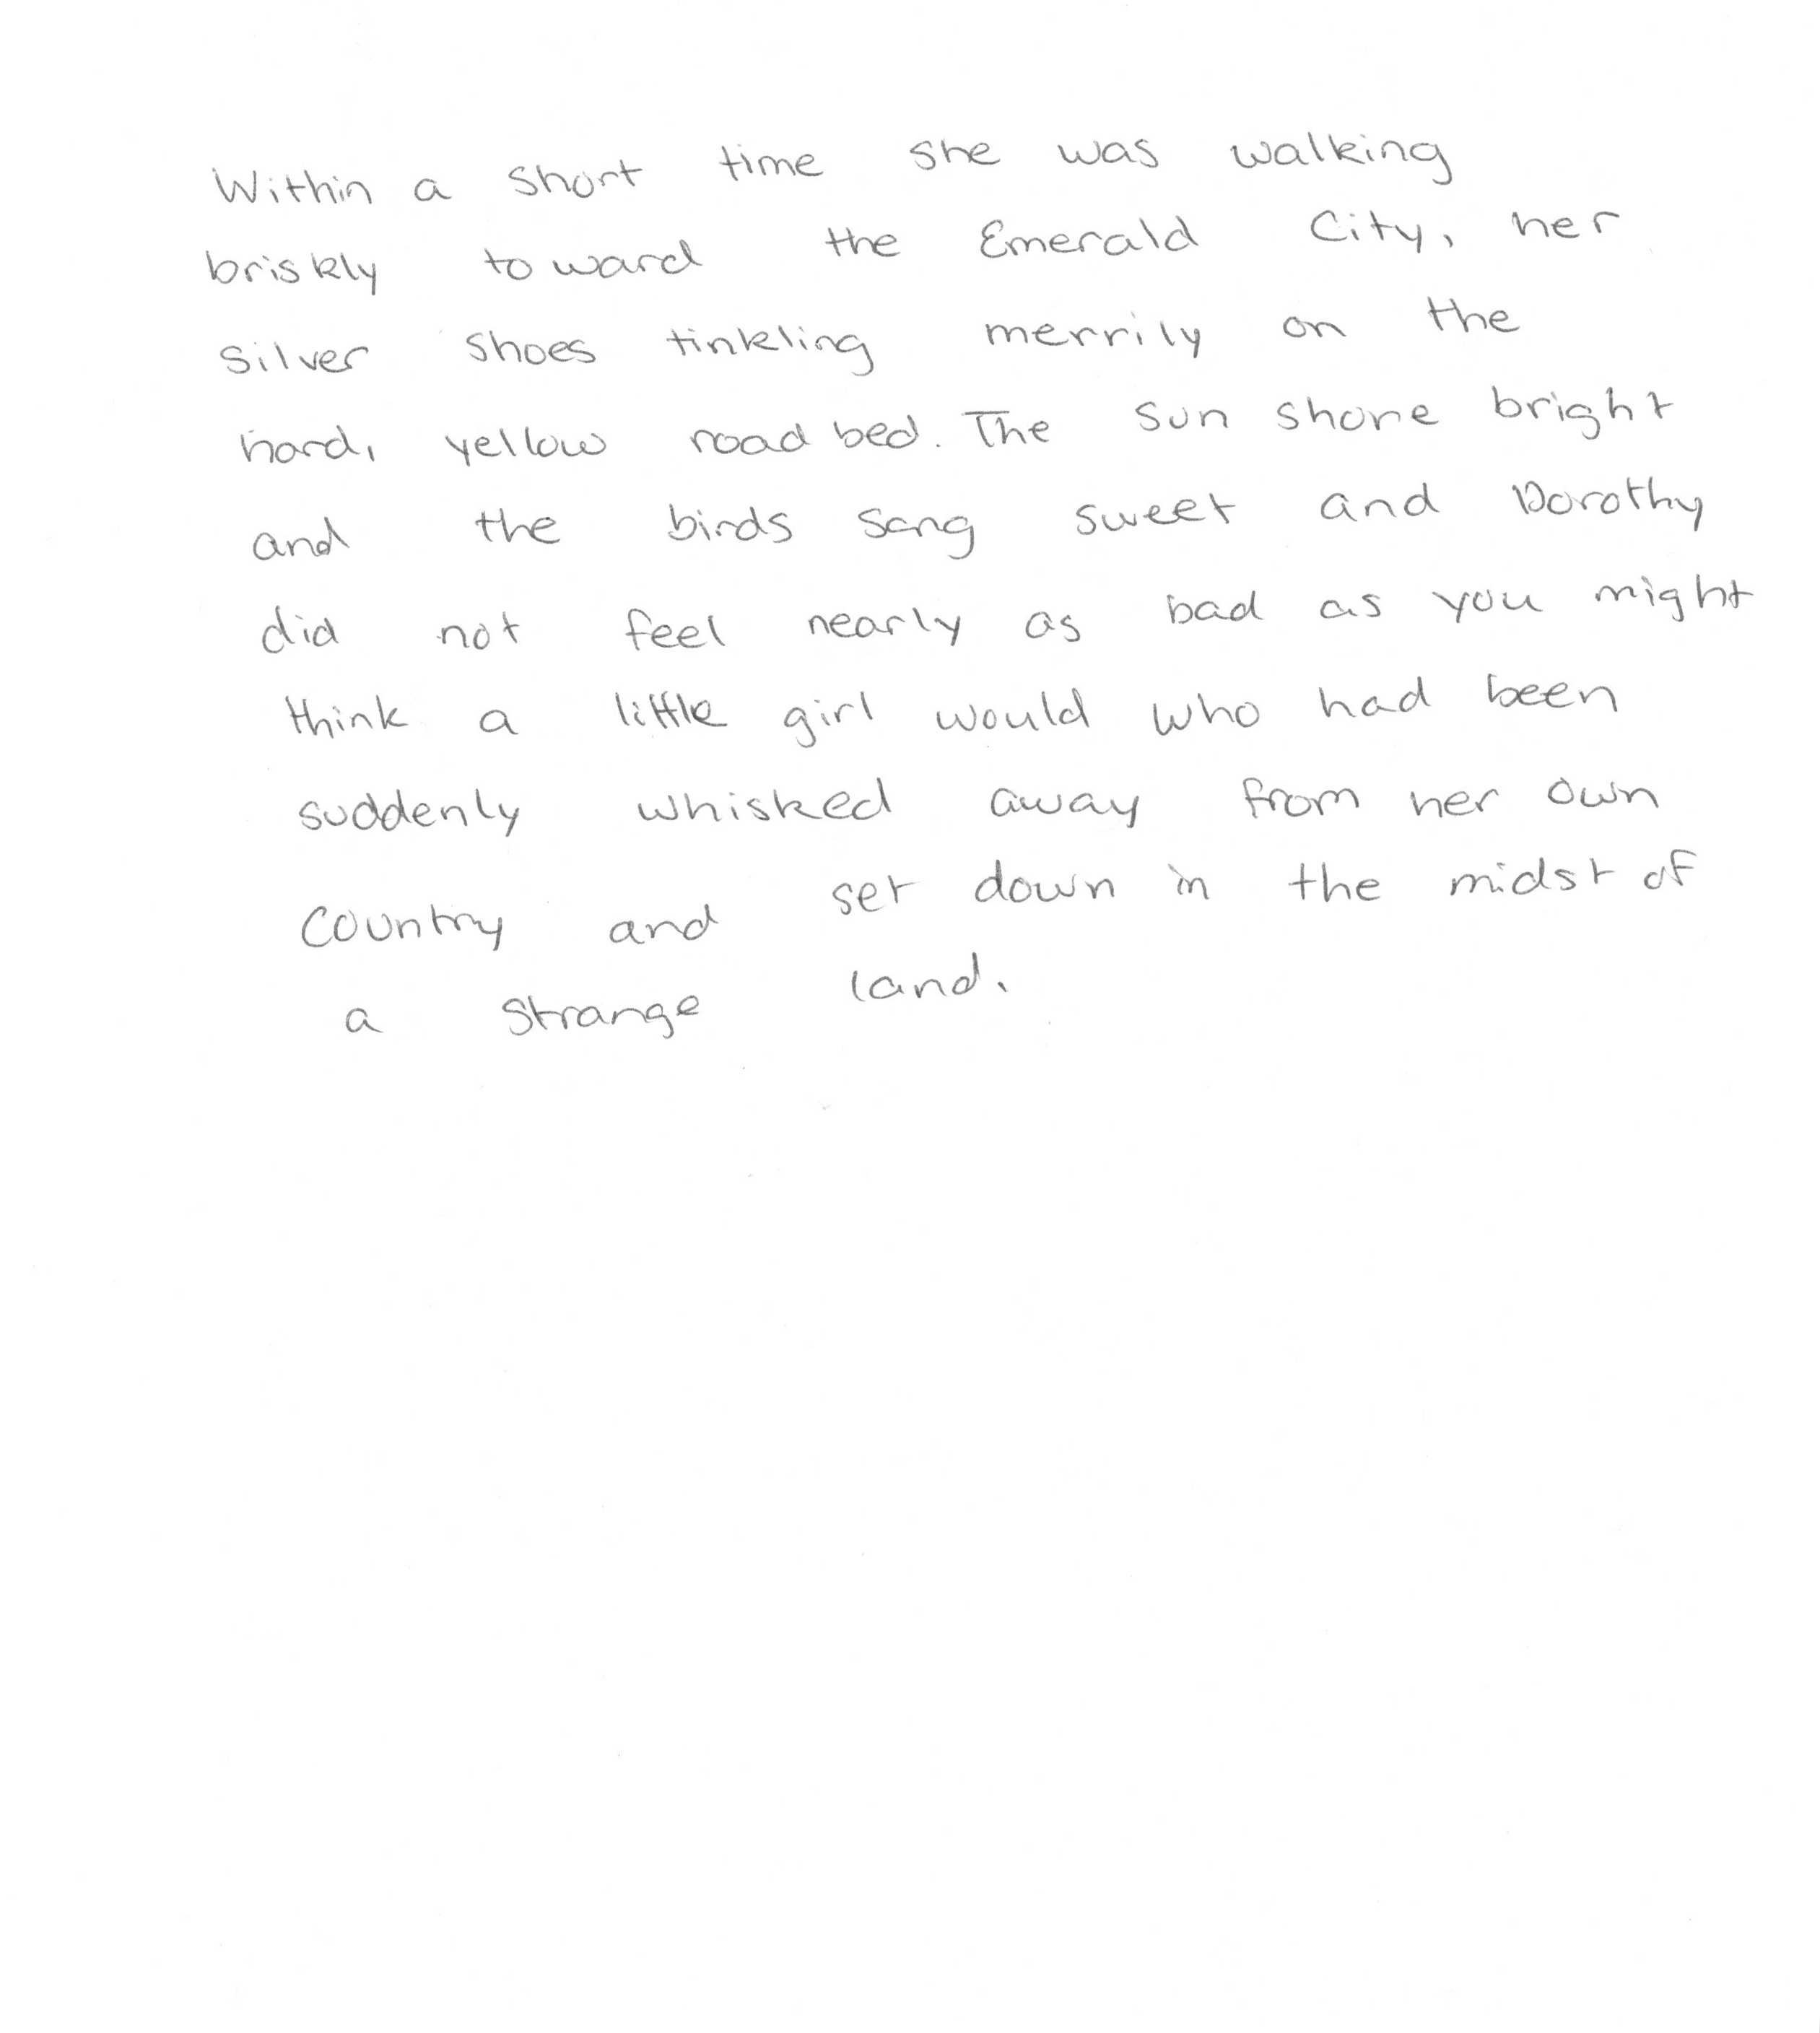 Within a short time she was walking
briskly toward the Emerald City, her
silver shoes tinkling merrily on the
hard, yellow road bed. The sun shone bright
and the birds sang sweet and Dorothy
did not feel nearly as bad as you might
think a little girl would who had been
suddenly whisked away from her own
country and set down in the midst of
a strange land.